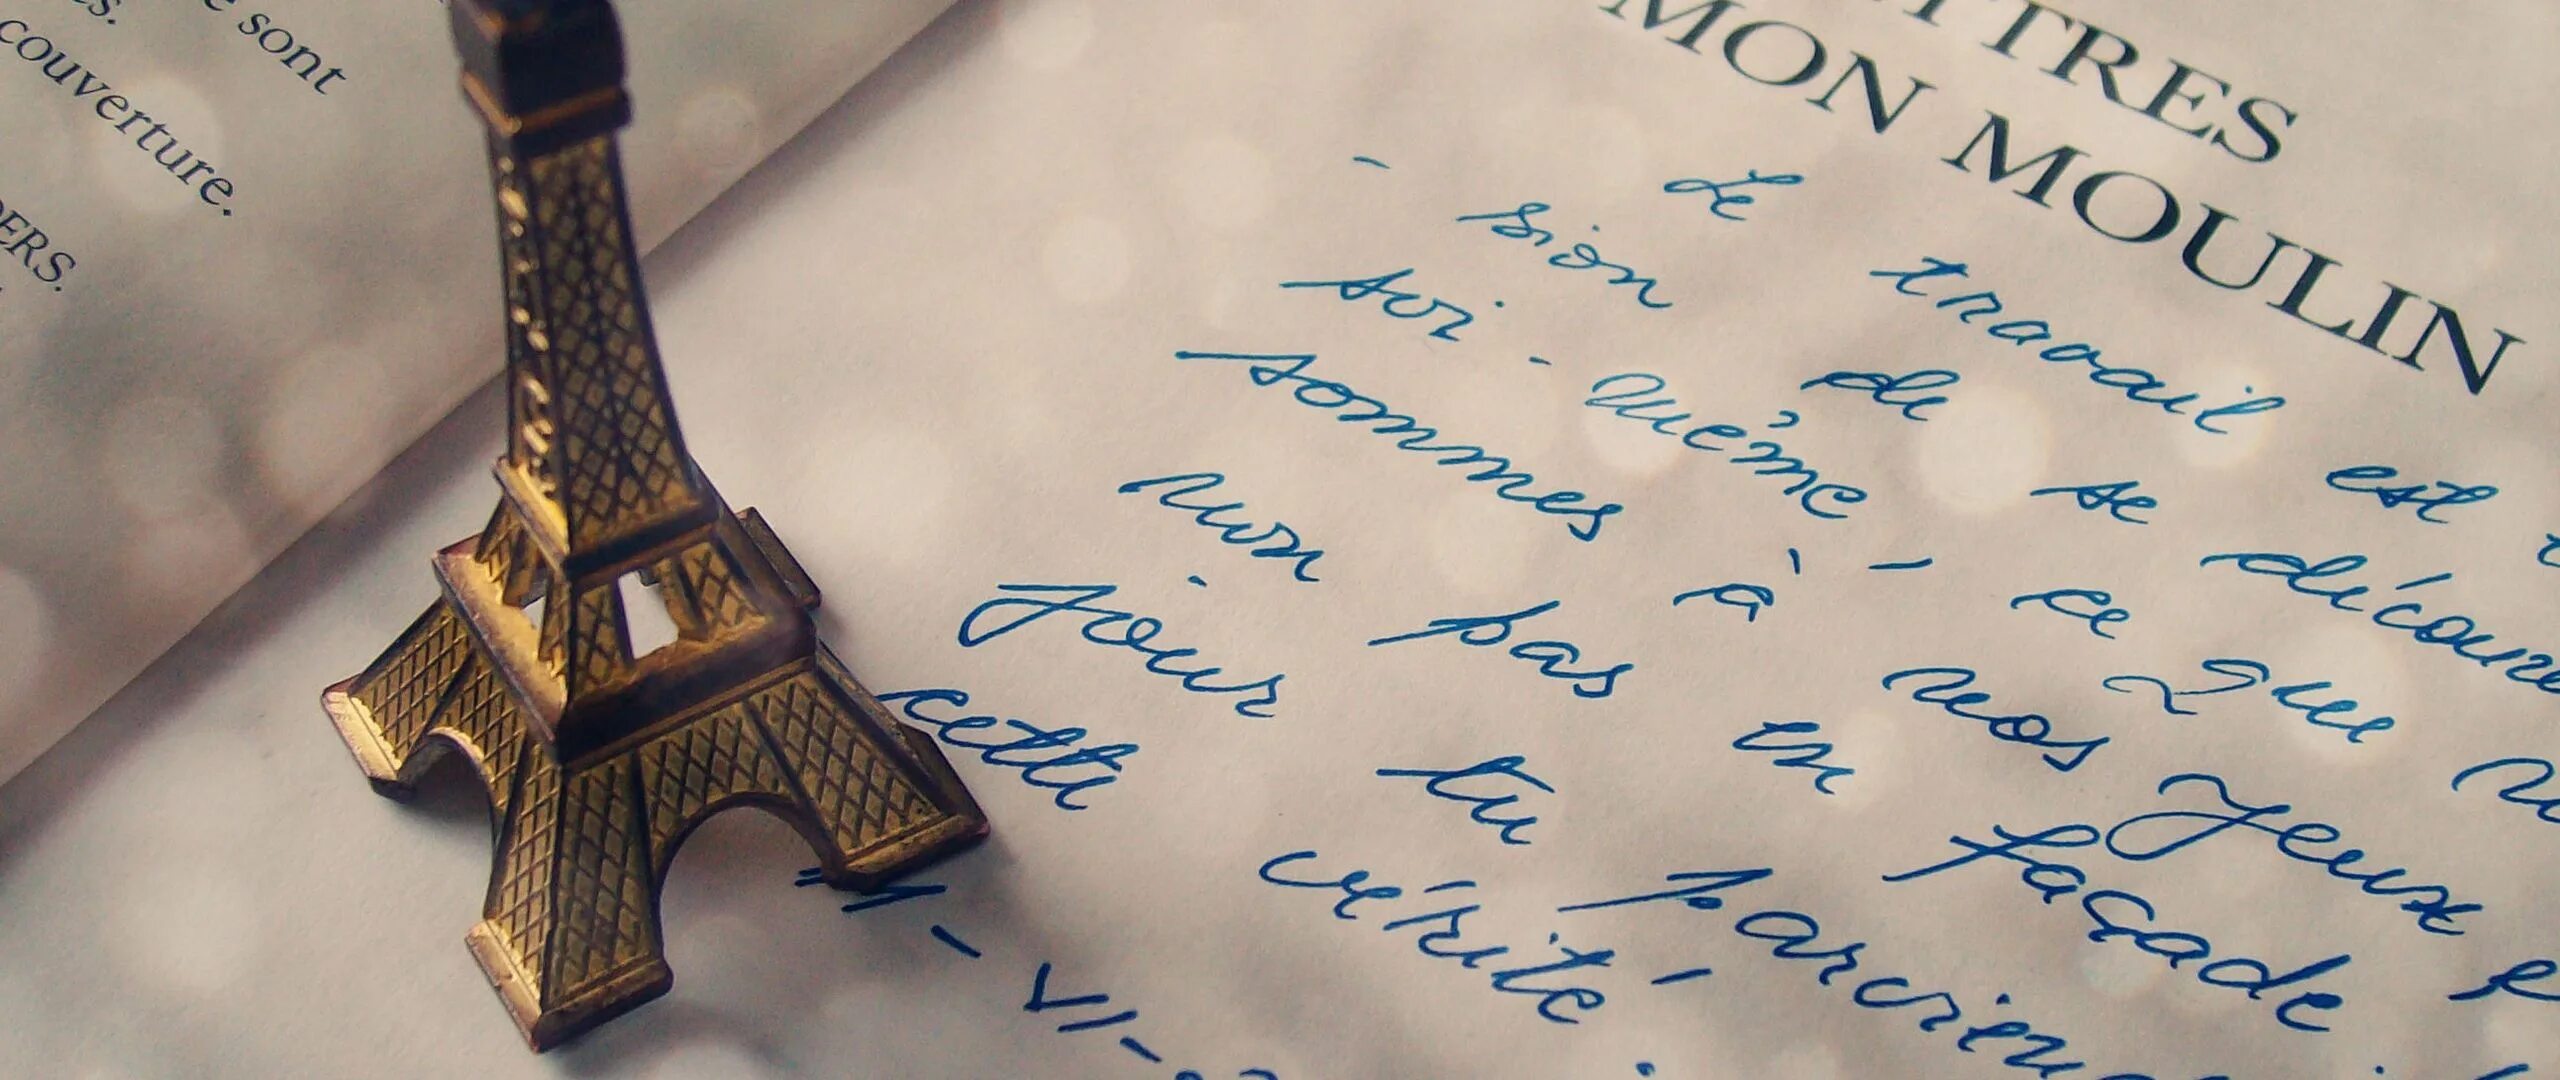 e sont
couverture.
DERS.
TTRES
MON MOULIN
Le travail est
-sion de se découvr
soi-même, ce que n
sommes à nos yeux e
non pas en façade.
jour tu parvien
cette vérité.
11-VI-